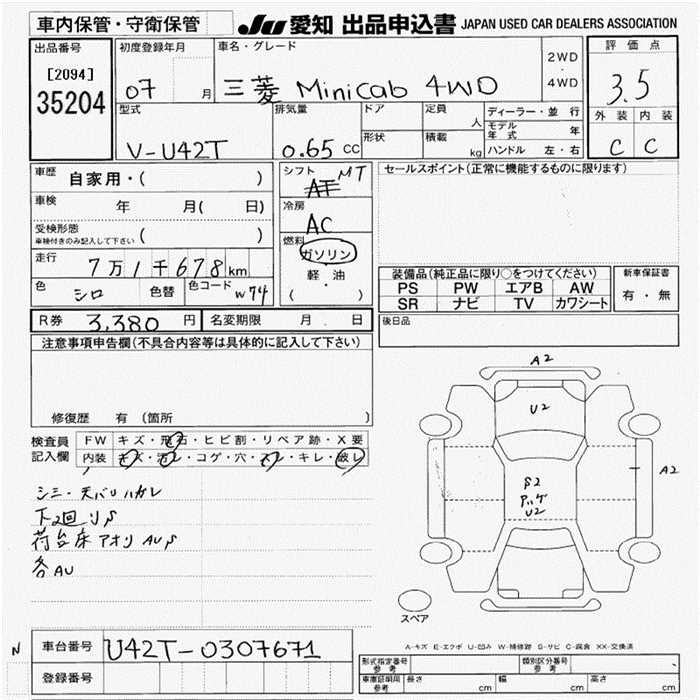 車内保管・守衛保管
JU 愛知 出品申込書 JAPAN USED CAR DEALERS ASSOCIATION
出品番号
[2094]
35204
初度登録年月
07 月
車名・グレード
三菱 Minicab 4WD
2WD
・
4WD
評価点
3.5
外装 内装
C C
型式
V-U42T
排気量
0.65 CC
ドア
形状
定員
人
積載
kg
ディーラー・並行
モデル年式 年
ハンドル 左・右
車歴
自家用・( )
車検
年 月( 日)
受検形態
車検付きのみ記入して下さい ( )
走行
7万1千678km
色
シロ
色替
色コード
W74
シフト
AT MT
冷房
AC
燃料
ガソリン
軽・油
( )
セールスポイント(正常に機能するものに限ります)
装備品(純正品に限り○をつけてください)
PS PW エアB AW
SR ナビ TV カワシート
新車保証書
有・無
R券 3,380 円
名変期限 月 日
後日品
注意事項申告欄(不具合内容等は具体的に記入して下さい)
修復歴 有 (箇所 )
検査員
記入欄
FW キズ・飛石・ヒビ割・リペア跡・X要
内装 キズ・汚レ・コゲ・穴・スレ・キレ・破レ
シミ・天バリハガレ
下2回リS
荷台床アオリAUS
各AU
A2
U2
A2
S2
ハゲ
U2
スペア
A-キズ E-エクボ U-凹み W-補修跡 S-サビ C-腐食 XX-交換済
N
車台番号 U42T-0307671
登録番号
型式指定番号
参考
類別区分番号
参考
車庫証明用
参考
長さ cm 幅 cm 高さ cm